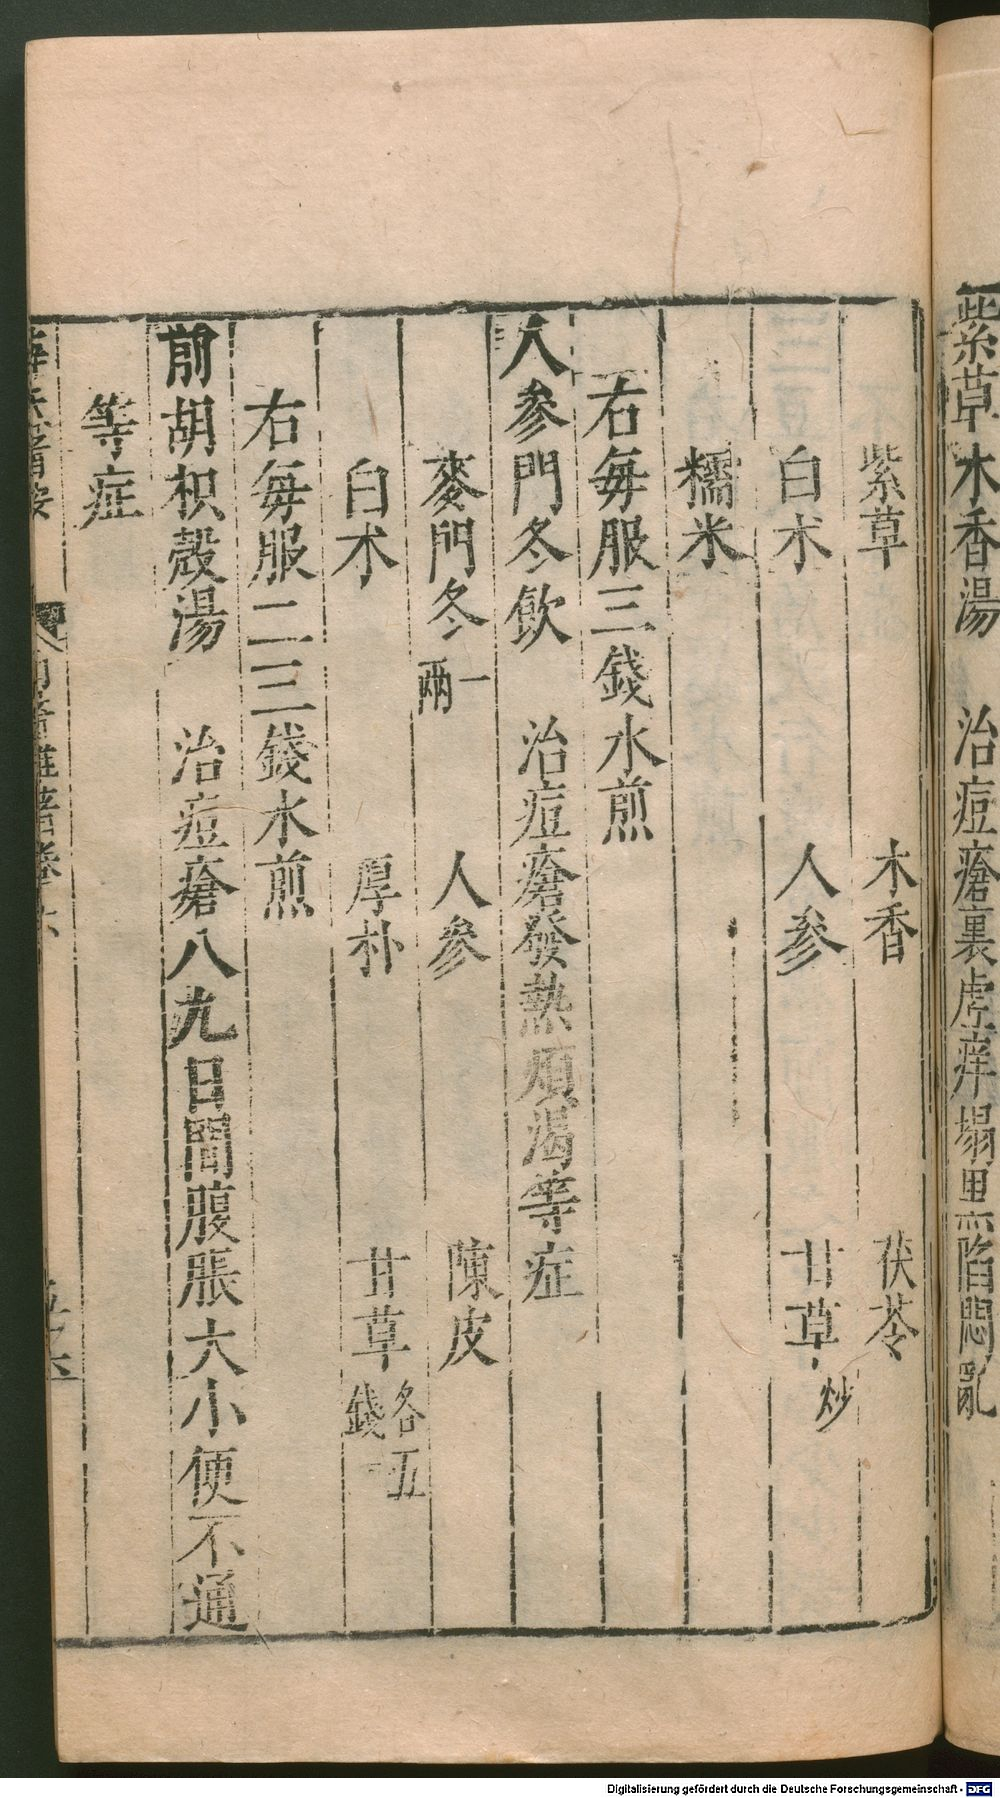 紫草木香湯　治痘瘡裏虛痒塌黑陷悶亂
紫草　木香　茯苓
白术　人參　甘草炒
糯米
右每服三錢水煎
人參門冬飲　治痘瘡發熱煩渴等症
麥門冬一兩　人參　陳皮
白术　厚朴　甘草各五錢
右每服二三錢水煎
前胡枳殼湯　治痘瘡八九日間腹脹大小便不通
等症
Digitalisierung gefördert durch die Deutsche Forschungsgemeinschaft - DFG